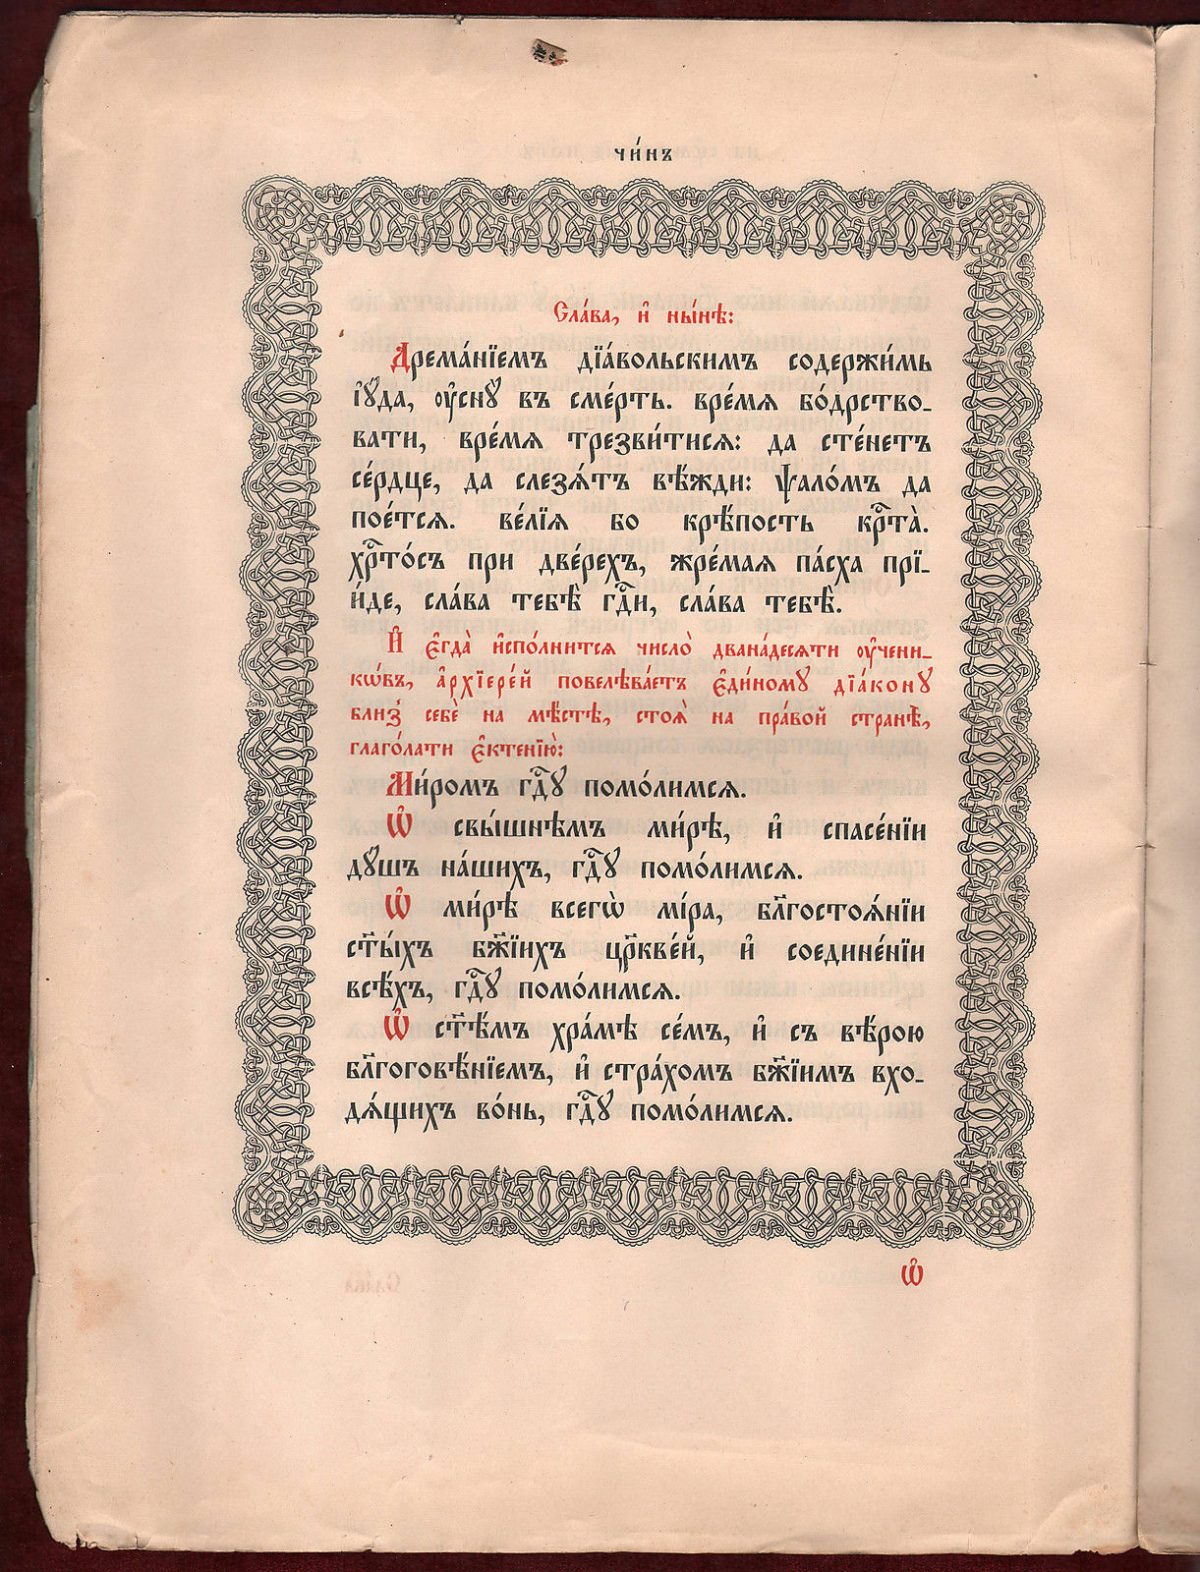 чи́нъ
Сла́ва, и҆ ны́нѣ:
Дрема́нїемъ дїа́вольскимъ содержи́мь
і҆ꙋ́да, ѹ҆снꙋ̀ въ сме́рть. вре́мѧ бо́дрство-
вати, вре́мѧ трезви́тисѧ: да сте́нетъ
се́рдце, да слезѧ́тъ вѣ́жди: ѱало́мъ да
пое́тсѧ. ве́лїѧ бо крѣ́пость крⷭ҇та̀.
хрⷭ҇то́съ при две́рехъ, жре́маѧ па́сха прї-
и́де, сла́ва тебѣ̀ гдⷭ҇и, сла́ва тебѣ̀.
И҆ є҆гда̀ и҆спо́лнитсѧ число̀ двана́десѧти ѹ҆ченик-
кѡ́въ, а҆рхїере́й повелѣва́етъ є҆ди́номꙋ дїа́конꙋ
близ̾ себѐ на мѣ́стѣ, стоѧ̀ на пра́вой странѣ̀,
глаго́лати є҆ктенїю̀:
Ми́ромъ гдⷭ҇ꙋ помо́лимсѧ.
Ѽ свы́шнѣмъ ми́рѣ, и҆ спасе́нїи
дꙋ́шъ на́шихъ, гдⷭ҇ꙋ помо́лимсѧ.
Ѽ ми́рѣ всегѡ̀ мі́ра, бл҃госто́ѧнїи
ст҃ы́хъ бж҃їихъ цр҃кве́й, и҆ соедине́нїи
всѣ́хъ, гдⷭ҇ꙋ помо́лимсѧ.
Ѽ ст҃ѣ́мъ хра́мѣ се́мъ, и҆ съ вѣ́рою
бл҃гоговѣ́нїемъ, и҆ стра́хомъ бж҃їимъ вхо-
дѧ́щихъ во́нь, гдⷭ҇ꙋ помо́лимсѧ.
ѽ